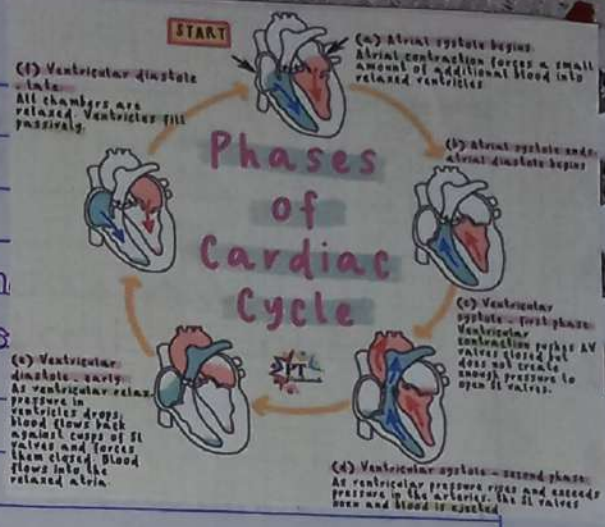 START
(a) Atrial systole begins:
Atrial contraction forces a small
amount of additional blood into
relaxed ventricles
(b) Atrial systole ends,
atrial diastole begins
(c) Ventricular
systole - first phase:
Ventricular
contraction pushes AV
valves closed but
does not create
enough pressure to
open SL valves.
(d) Ventricular systole - second phase:
As ventricular pressure rises and exceeds
pressure in the arteries, the SL valves
open and blood is ejected
(e) Ventricular
diastole - early:
As ventricular relax,
pressure in
ventricles drops;
blood flows back
against cusps of SL
valves and forces
them closed. Blood
flows into the
relaxed atria.
(f) Ventricular diastole
- late:
All chambers are
relaxed. Ventricles fill
passively.
Phases
of
Cardiac
Cycle
PT